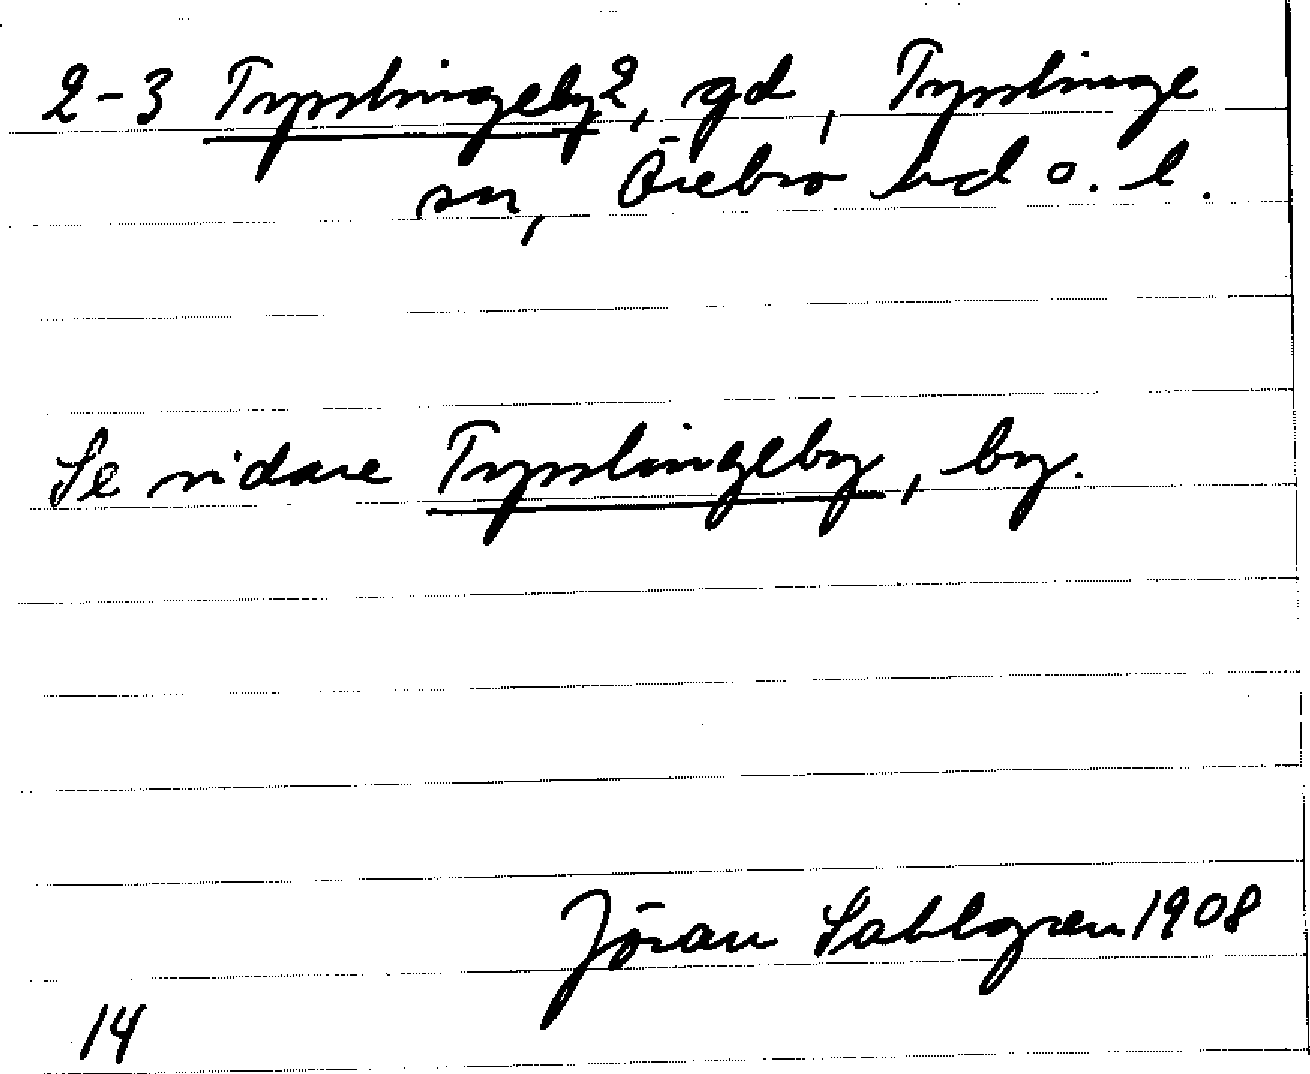 2-3 Tysslingeby 2, gd, Tysslinge
sn, Örebro hd o. l.
Se vidare Tysslingeby, by.
Jöran Sahlgren 1908
14